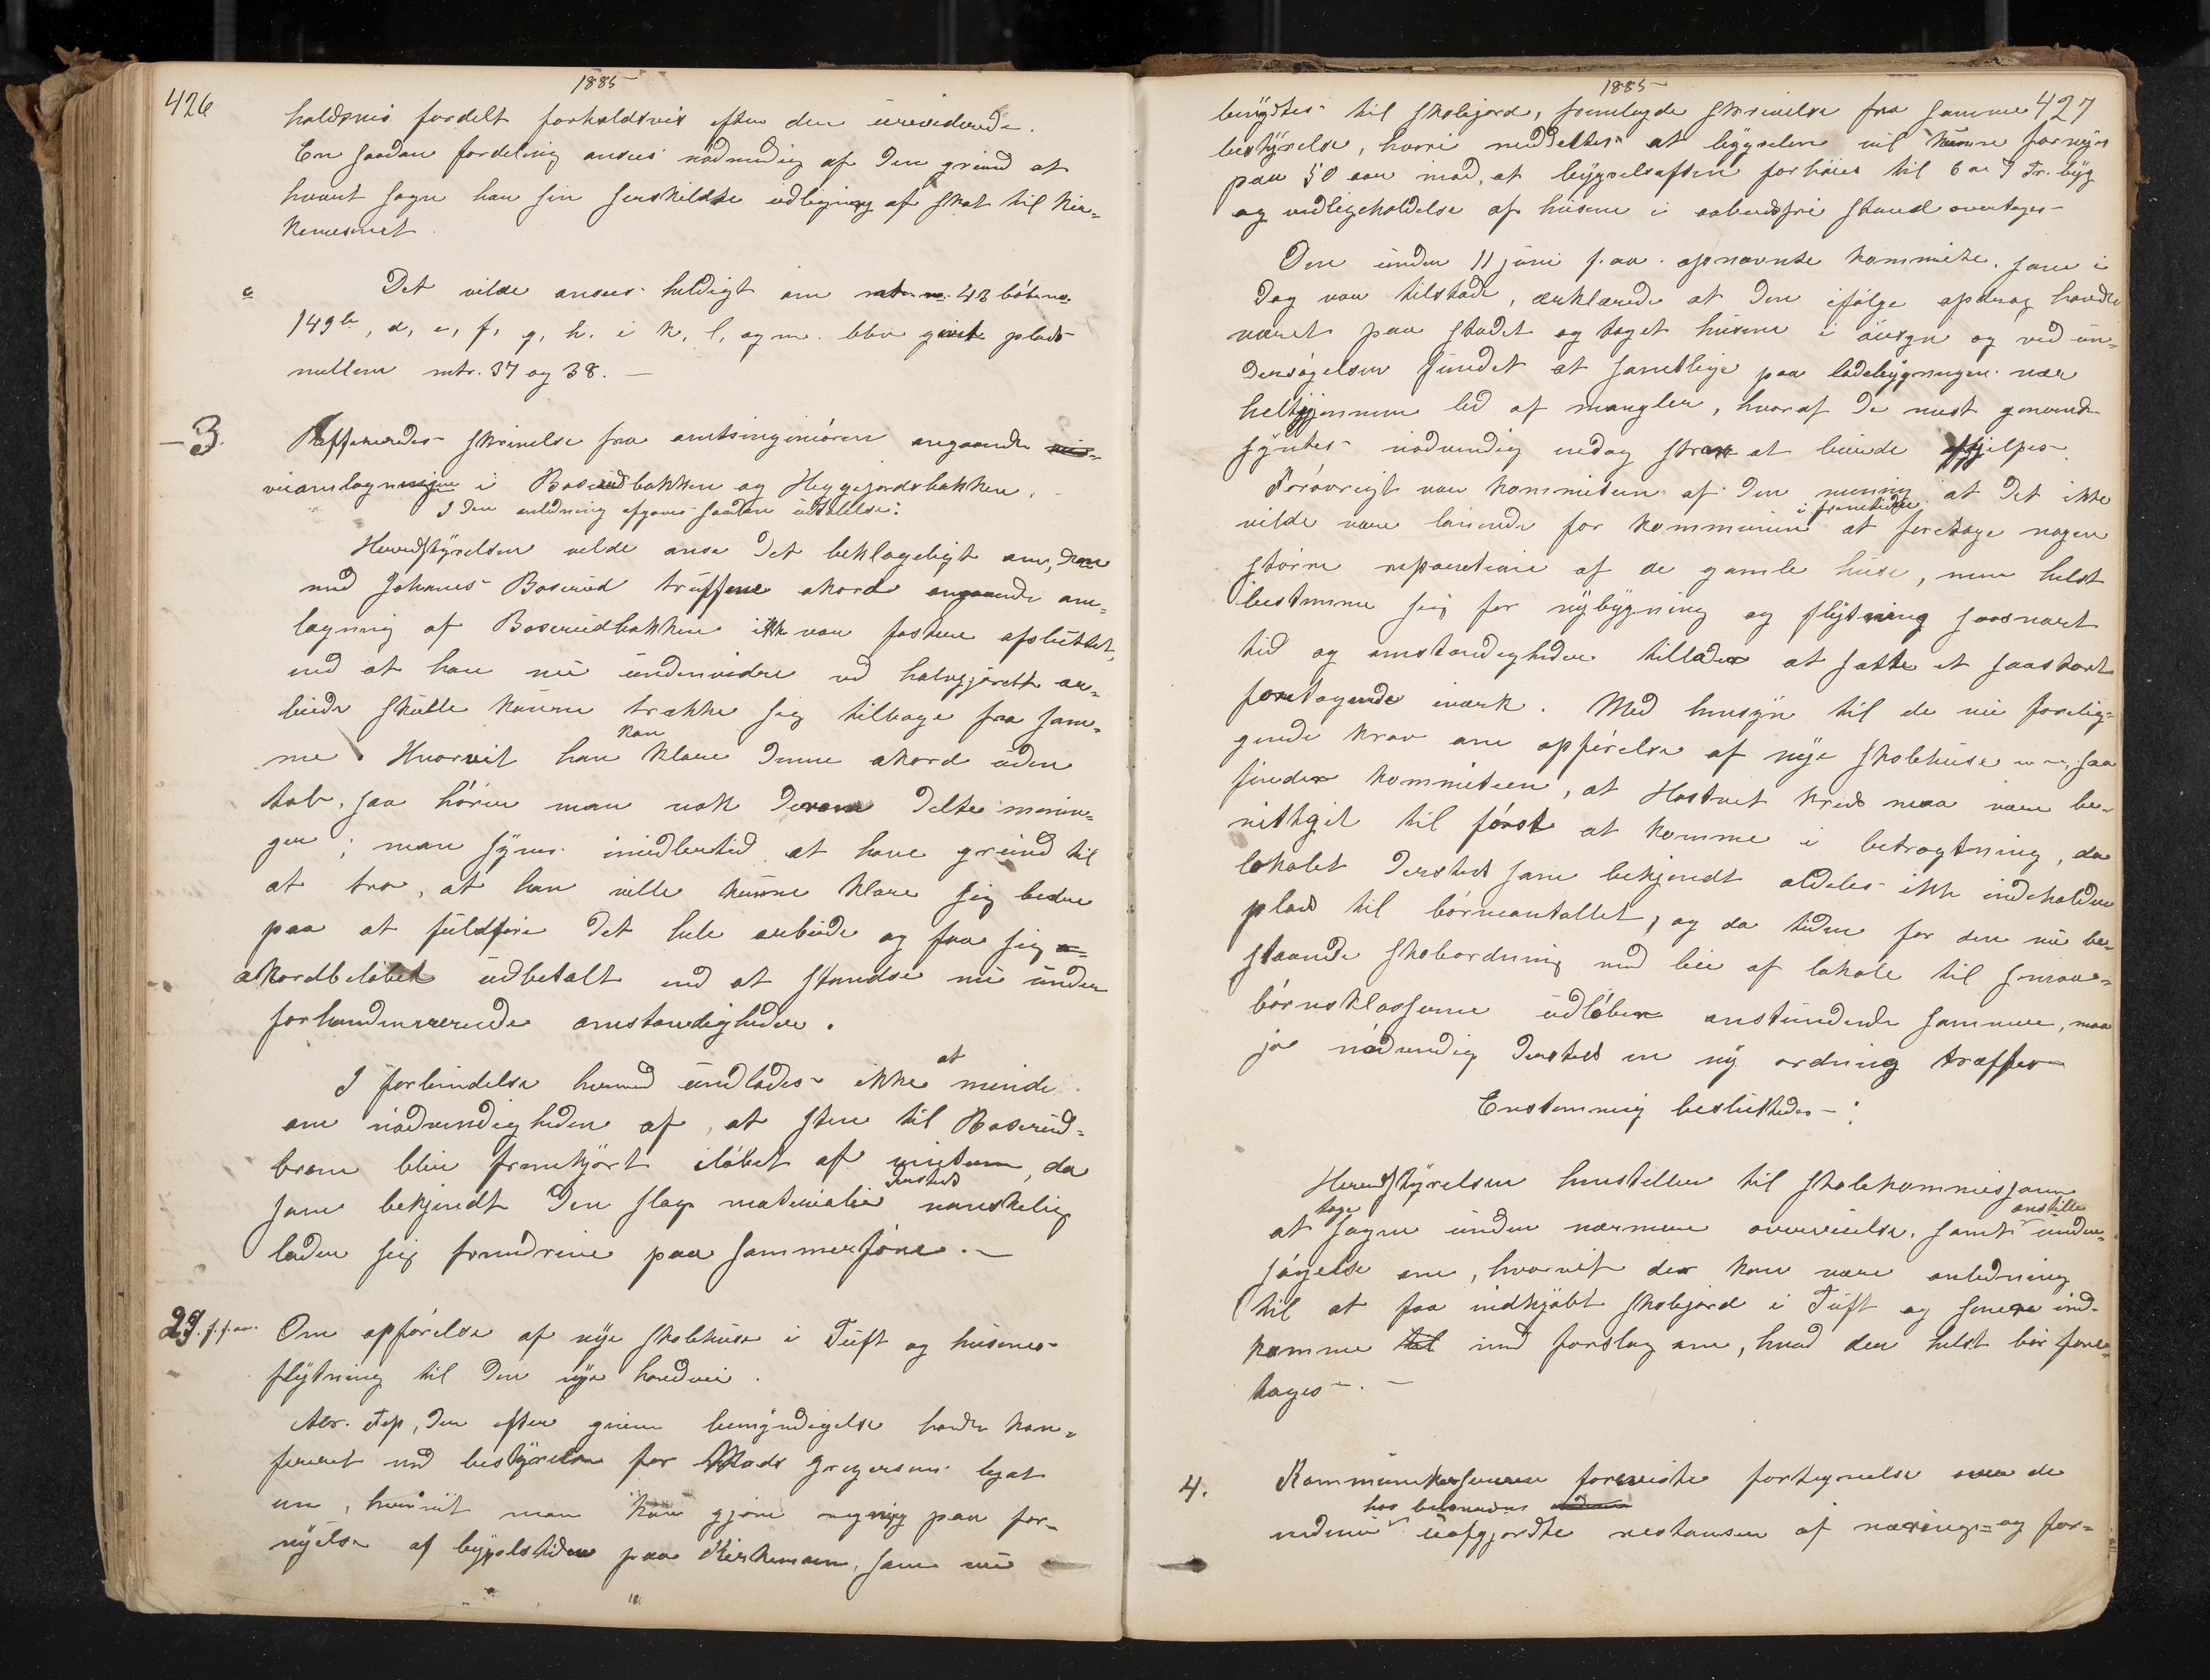 1885
426
holdsvis fordelt forholdsvis efter den ureviderede.
En saadan fordeling ansees nødvendig af den grund at
hvert sogn har sin særskildte udligning af skat til kir-
kevæsenet.
c Det vilde ansees heldigt om mtr. no. 48 løbeno.
149 b, d, e, f, g, h, i k, l, og m. blev givet plads
mellem mtr. 37 og 38. —
— 3. Refferedes skrivelse fra amtsingeniøren angaaende
veiomlægningen i Boserudbakken og Heggejordsbakken.
I den anledning afgaves saadan udtalelse:
Herredsstyrelsen vilde anse det beklageligt om, den
med Johanes Boserud truffene akord angaaende om-
lægning af Boserudbakken ikke var fastere afsluttet,
end at han nu undenvidre ved halvgjørett ar-
beide skulde kunne trække sig tilbage fra sam-
me. Hvorvit han kan klare denne akord uden
tab, saa hører man nok derom delte menin-
ger; man synes imidlertid at have grund til
at tro, at han ville kunne klare sig bedre
paa at fuldføre det hele arbeide og faa sig a-
akordbeløbet udbetalt end at standse nu under
forhaandenværende omstændigheder.
I forbindelse hermed undlades ikke at minde
om nødvendigheden af, at sten til Boserud-
broen blir fremkjørt iløbet af vinteren, da
som bekjendt den slags materialier dersteds vanskelig
lader sig fremdrive paa sommerføre. —
29. f. f. aar. Om opførelse af nye skolehuse i Tuft og husenes
flytning til den nye hovedvei.
Abr. Tep, der efter given bemyndigelse havde kon-
fereret med bestyrelsen for Mads Gregersens legat
om, hvorvit man kan gjøre regning paa for-
nyelse af bygselstiden paa Kirkemoen, som nu
1885
427
benyttes til skolejord, fremlagde skrivelse fra samme
bestyrelse, hvori meddeltes at bygselen vil kunne fornyes
paa 50 aar mod, at bygselsafgiften forhøies til 6 a 7 Tr. byg
og vedligeholdelse af husene i aabodsfri stand overtages —
Den under 11 juni f. aar. opnævnte kommite, som i
dag var tilstæde, erklærede at den ifølge opdrag havde
været paa stedet og taget husene i øiesyn og ved un-
dersøgelsen fundet at samtlige paa ladebygningen nær
heltigjennem led af mangler, hvoraf de mest graverende
syntes nødvendig endog strax at burde afhjelpes.
Forøvrigt var kommiteen af den mening at det ikke
vilde være lønnende for kommunen i fremtiden at foretage nogen
større reparation af de gamle huse, men helst
bestemme sig for nybygning og flytning saasnart
tid og omstændigheder tillader at sætte et saastort
foretagende iværk. Med hensyn til de nu forelig-
gende krav om opførelse af nye skolehuse saa
finder kommiteen, at Hostvet kreds maa være be-
rettiget til først at komme i betragtning, da
lokalet dersteds som bekjendt aldeles ikke indeholder
plads til børneantallet, og da tiden for den nu be-
staaende skoleordning med leie af lokale til smaa-
børnsklasserne udløber anstundende sommer, maa
jo nødvendig dersteds en ny ordning træffes —
Enstemmig besluttedes — :
Herredsstyrelsen henstiller til skolekommissionen
at tage sagen under nærmere overveielse, samt anstille under-
søgelse om, hvorvit der kan være anledning
til at faa indkjøbt skolejord i Tuft og senere ind-
komme til med forslag om, hvad der helst bør fore-
tages —. —
4. Kommunekassereren foreviste fortegnelse over de
endnu hos uafgjordte restanser af nærings- og for-